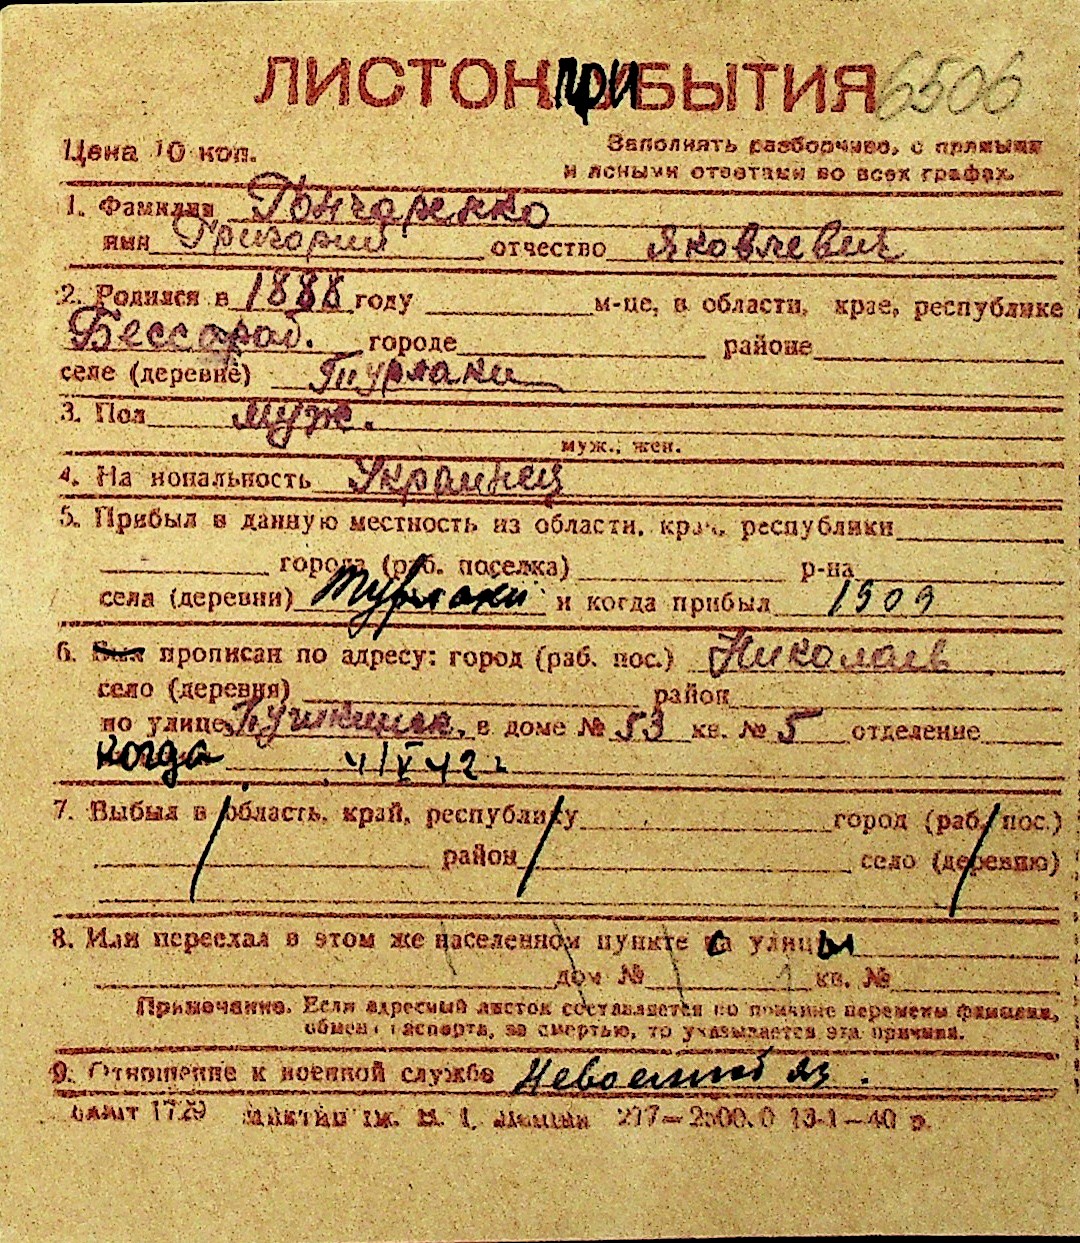 ЛИСТОК ПРИБЫТИЯ 6506
Цена 10 коп.
Заполнять разборчиво, с прямыми
и ясными ответами во всех графах.
1. Фамилия Гончаренко
имя Григорий отчество Яковлевич
2. Родился в 1888 году м-це, в области, крае, республике
Бессараб. городе районе
селе (деревне) Турлаки
3. Пол муж.
муж., жен.
4. Национальность Украинец
5. Прибыл в данную местность из области, края, республики
города (раб. поселка) р-на
села (деревни) Турлаки и когда прибыл 1909
6. Был прописан по адресу: город (раб. пос.) Николаев
село (деревня) район
по улице Пушкинск. в доме № 53 кв. № 5 отделение
когда 4/V 42 г.
7. Выбыл в область, край, республику город (раб. пос.)
район село (деревню)
8. Или переехал в этом же населенном пункте с улицы
дом № кв. №
Примечание. Если адресный листок составляется по причине перемены фамилии,
обмена паспорта, за смертью, то указывается эта причина.
9. Отношение к военной службе Невоеннообяз.
1729 277—2500.0 13-1—40 р.